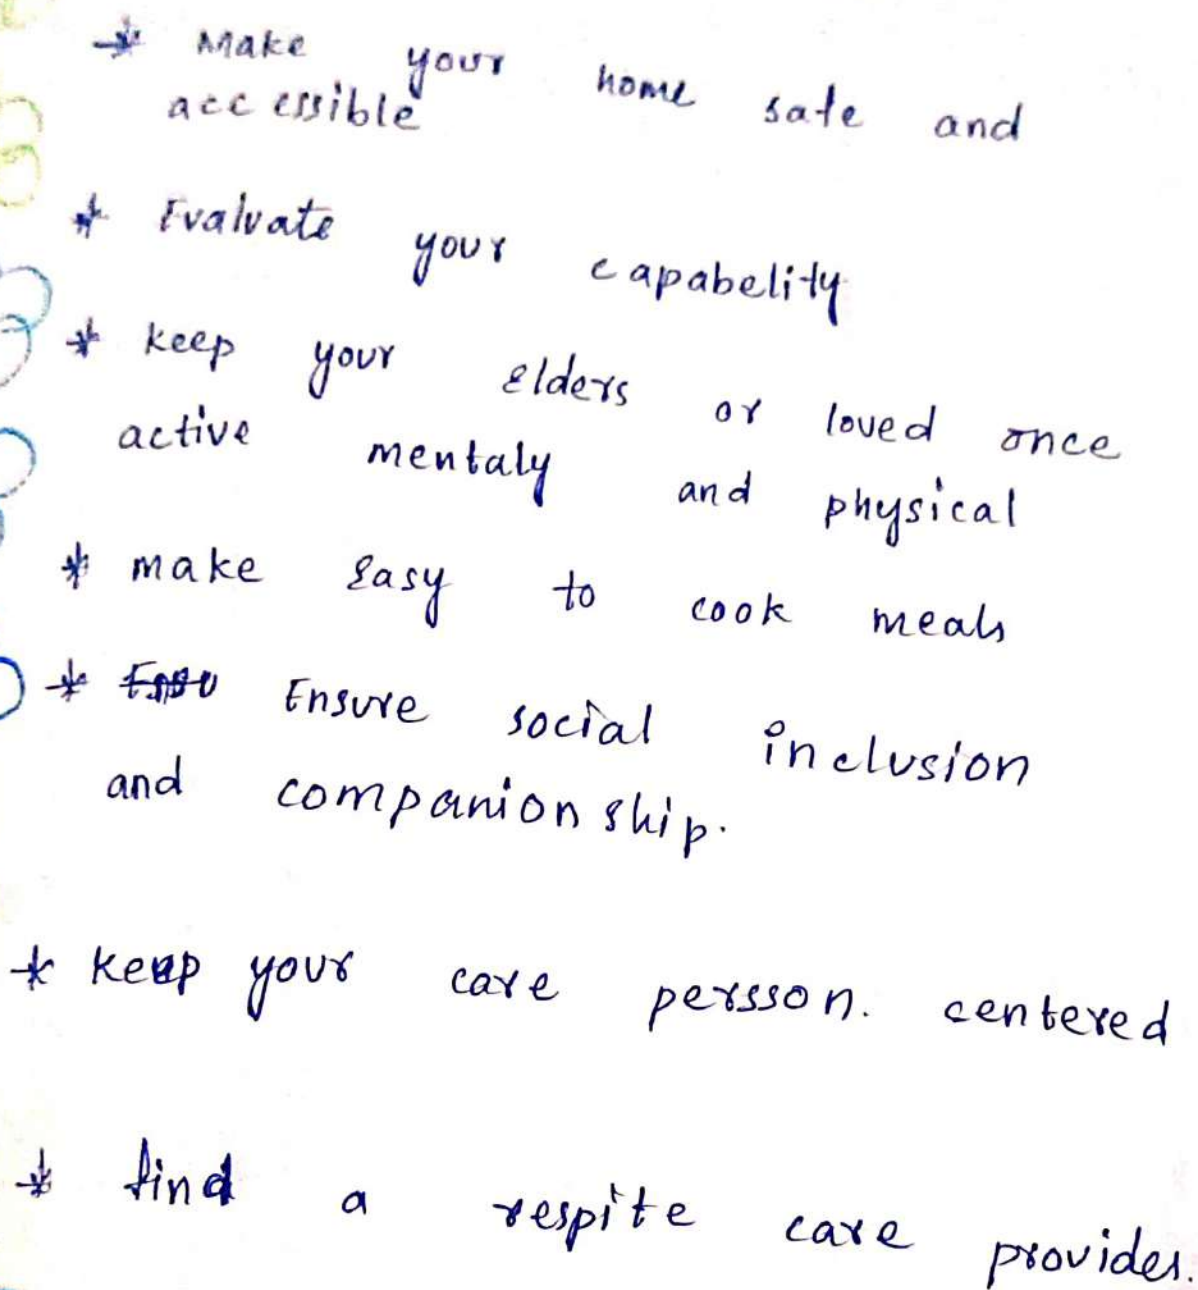 * Make your home safe and
accessible
* Evaluate your capabelity
* keep your elders or loved once
active mentaly and physical
* make easy to cook meals
* Ensure social inclusion
and companionship.
* keep your care persson. centered
* find a respite care provides.